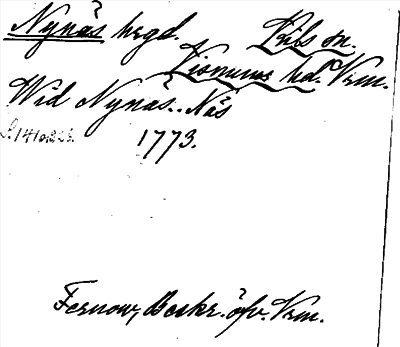 Nynäs hrgd. Kils sn.
Visnums hd. Vrm.
Wid Nynäs.. Näs
1773.
Fernow, Beskr. öfv. Vrm.